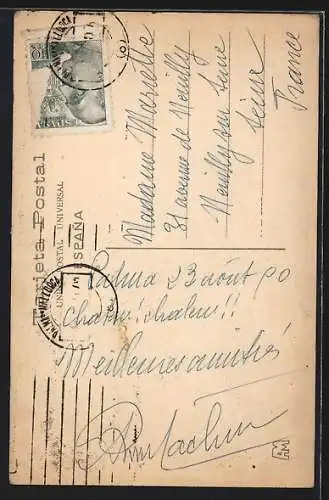 Tarjeta Postal
UNION POSTAL UNIVERSAL
ESPAÑA
Madame Mariette
31 avenue de Neuilly
Neuilly sur Seine
Seine
France
Palma 23 août 50
chaleur! chaleur!!
Meilleures amitiés
AM